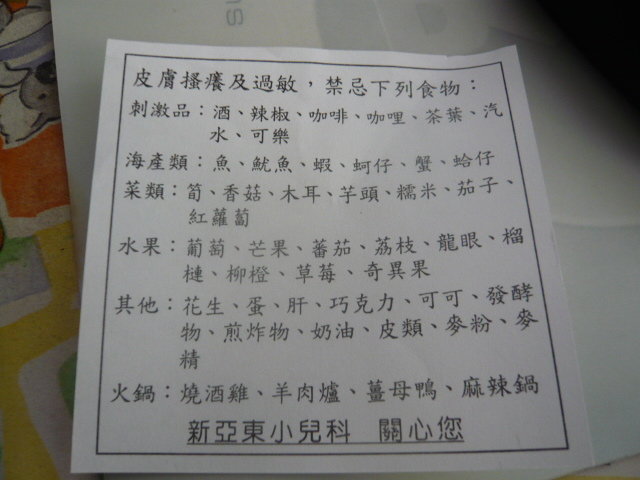 皮膚搔癢及過敏，禁忌下列食物：
刺激品：酒、辣椒、咖啡、咖哩、茶葉、汽
水、可樂
海產類：魚、魷魚、蝦、蚵仔、蟹、蛤仔
菜類：筍、香菇、木耳、芋頭、糯米、茄子、
紅蘿蔔
水果：葡萄、芒果、蕃茄、荔枝、龍眼、榴
槤、柳橙、草莓、奇異果
其他：花生、蛋、肝、巧克力、可可、發酵
物、煎炸物、奶油、皮類、麥粉、麥
精
火鍋：燒酒雞、羊肉爐、薑母鴨、麻辣鍋
新亞東小兒科 關心您